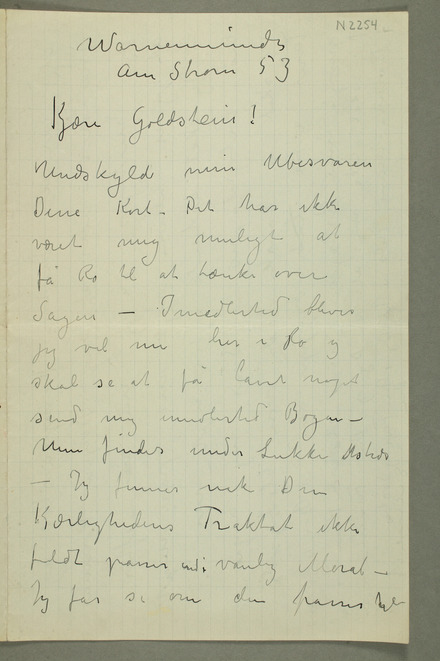 N 2254
Warnemünde
Am Strom 53
Kjære Goldstein!
Undskyld min Ubesvaren
Dine Kort – Det har ikke
været mig muligt at
få Ro til at tænke over
Sagen – Imedlertid bliver
jeg vel nu her i Ro og
skal se at få lavet noget
send mig imedlertid Bogen –
Min findes under Lukke
– Jeg finner nok Din
Kærlighedens Traktat ikke
feldt passer ind i vanlig Moral –
Jeg får se om den passer